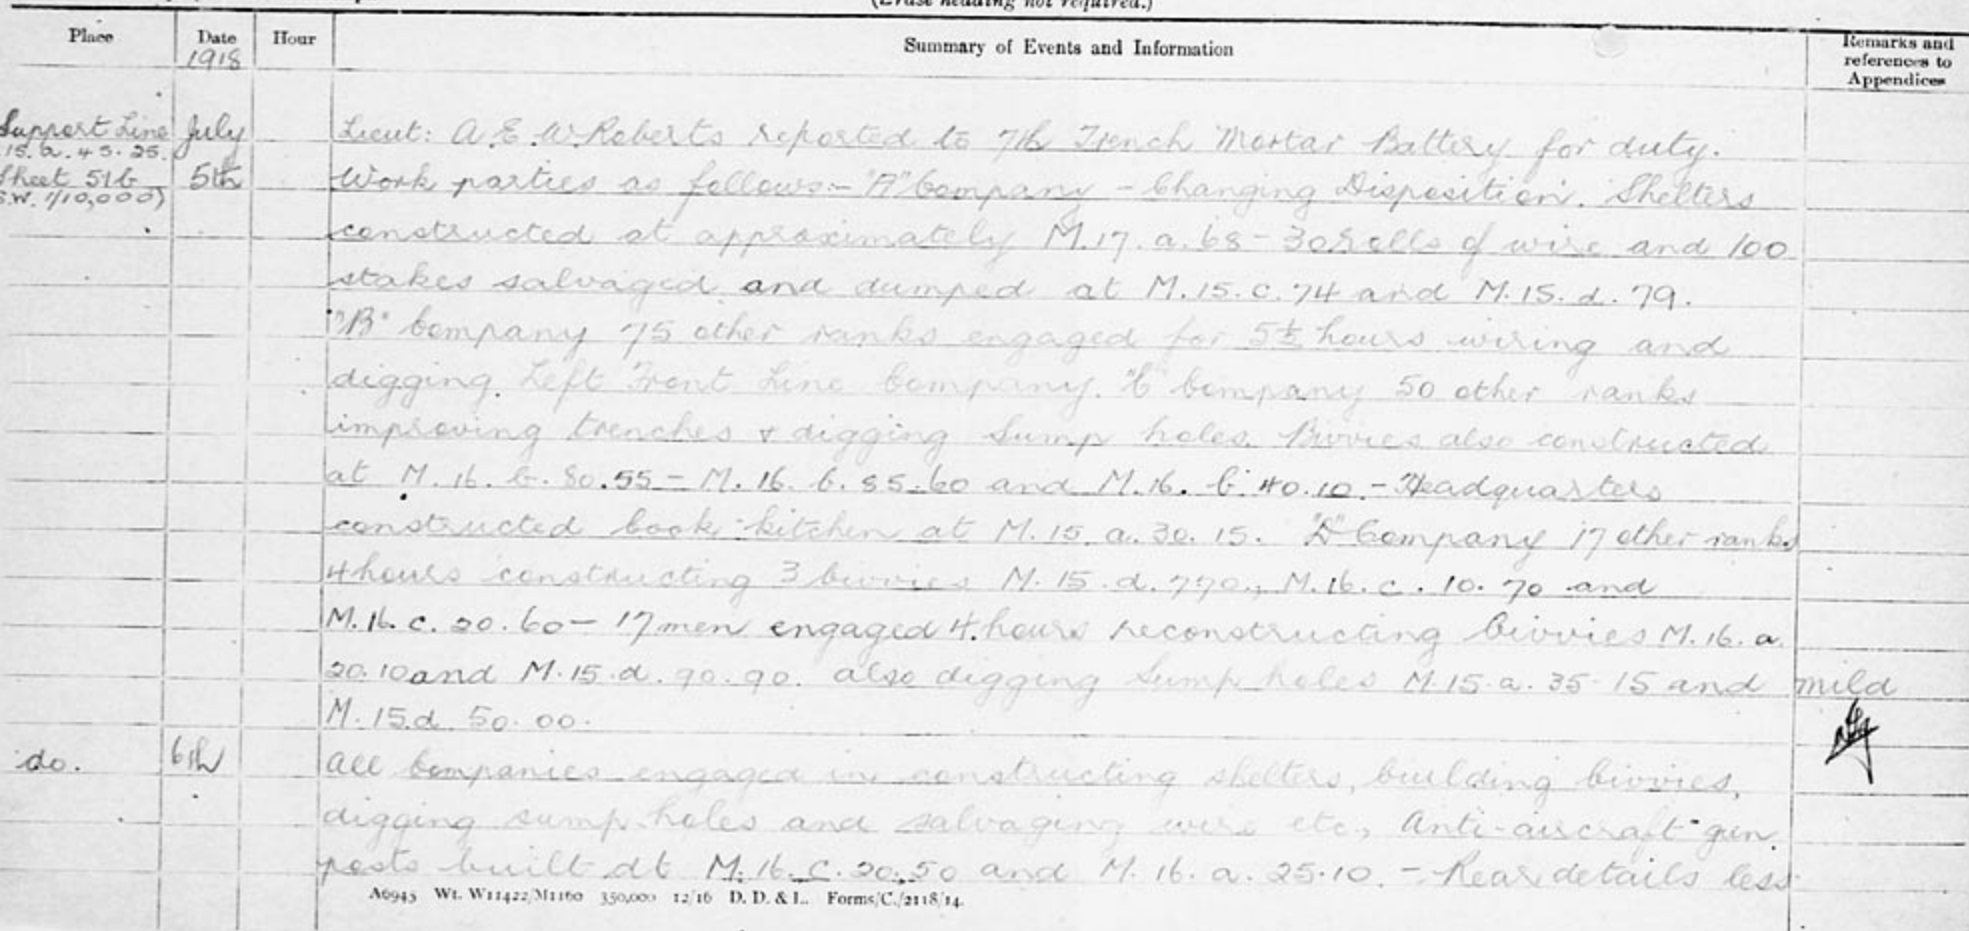 (Erase heading not required.)
Place Date Hour Summary of Events and Information Remarks and references to Appendices
1918
Support Line July Lieut: A. E. W. Roberts reported to 7th Trench Mortar Battery for duty.
15. a. 45. 25.
Sheet 51b 5th Work parties as follows:- "A" Company - Changing Disposition. Shelters
S.W. 1/10,000)
constructed at approximately M.17. a. 68 - 30 rolls of wire and 100
stakes salvaged and dumped at M.15. c. 74 and M.15. d. 79.
"B" Company 75 other ranks engaged for 5½ hours wiring and
digging. Left Front Line Company. "C" Company 50 other ranks
improving trenches & digging Sump holes. Bivvies also constructed
at M. 16. b. 80.55 - M. 16. b. 85.60 and M.16. b. 40.10. - Headquarters
constructed Cook-kitchen at M. 15. a. 30. 15. "D" Company 17 other ranks
4 hours constructing 3 bivvies M. 15. d. 770., M.16. c. 10. 70 and
M.16. c. 20. 60 - 17 men engaged 4 hours reconstructing bivvies M.16. a.
20.10 and M.15.d. 90.90. also digging Sump holes M.15.a. 35.15 and mild
M. 15.d 50.00.
do. 6th All Companies engaged in constructing shelters, building bivvies,
digging sump-holes and salvaging wire etc., Anti-aircraft gun
posts built at M.16.C.20.50 and M. 16. a. 25.10. - Rear details less
A6945 Wt. W11422/M1160 350,000 12/16 D. D. & L. Forms/C./2118/14.